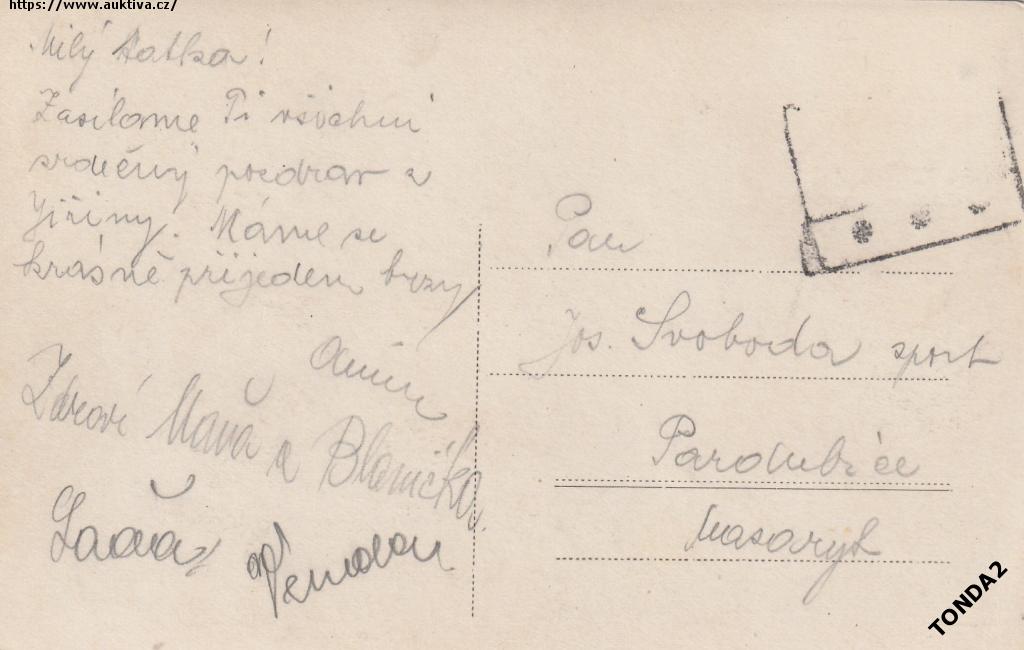 https://www.auktiva.cz/
Milý
Zasílame Ti všichni
srdečný pozdrav z
Jiřiny. Máme se
krásně přijedem brzy
Zdraví Máňa a Blanička.
Láďa
Pan
Jos. Svoboda sport
Pardubice
Masaryk
TONDA2